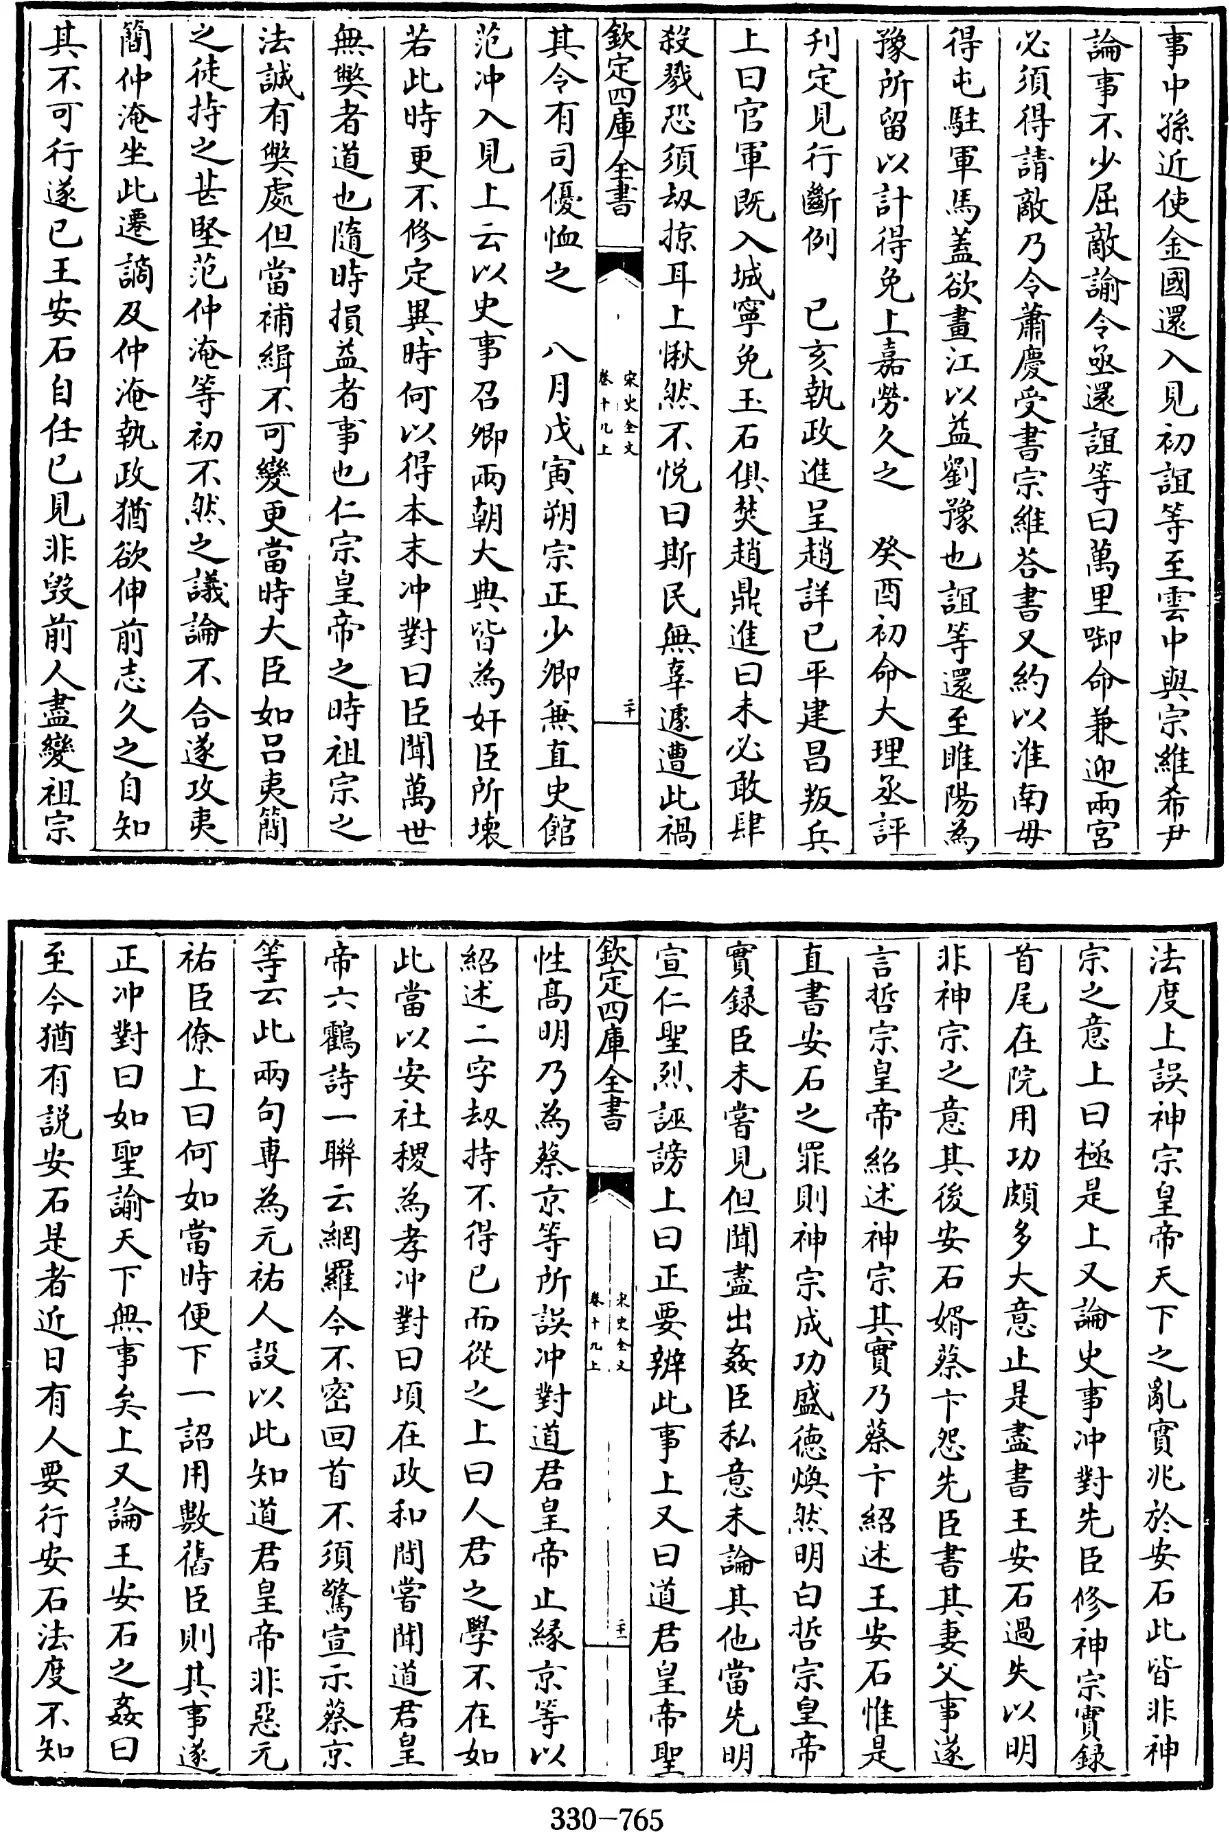 事中孫近使金國還入見初誼等至雲中與宗維希尹
論事不少屈敵諭令亟還誼等曰萬里啣命兼迎兩宮
必須得請敵乃令蕭慶受書宗維荅書又約以淮南毋
得屯駐軍馬蓋欲畫江以益劉豫也誼等還至睢陽為
豫所留以計得免上嘉勞久之　癸酉初命大理丞評
刋定見行斷例　已亥執政進呈趙詳已平建昌叛兵
上曰官軍既入城寧免玉石俱焚趙鼎進曰未必敢肆
殺戮恐須刼掠耳上愀然不悅曰斯民無辜遽遭此禍
欽定四庫全書
宋史全文
卷十九上
二十
其令有司優恤之　八月戊寅朔宗正少卿兼直史館
范冲入見上云以史事召卿兩朝大典皆為奸臣所壞
若此時更不修定異時何以得本末冲對曰臣聞萬世
無獘者道也隨時損益者事也仁宗皇帝之時祖宗之
法誠有獘處但當補緝不可變更當時大臣如呂夷簡
之徒持之甚堅范仲淹等初不然之議論不合遂攻夷
簡仲淹坐此遷謫及仲淹執政猶欲伸前志久之自知
其不可行遂已王安石自任已見非毀前人盡變祖宗
法度上誤神宗皇帝天下之亂實兆於安石此皆非神
宗之意上曰極是上又論史事冲對先臣修神宗實録
首尾在院用功頗多大意止是盡書王安石過失以明
非神宗之意其後安石婿蔡卞怨先臣書其妻父事遂
言哲宗皇帝紹述神宗其實乃蔡卞紹述王安石惟是
直書安石之罪則神宗成功盛德煥然明白哲宗皇帝
實録臣未嘗見但聞盡出姦臣私意未論其他當先明
宣仁聖烈誣謗上曰正要辨此事上又曰道君皇帝聖
欽定四庫全書
宋史全文
卷十九上
二十一
性高明乃為蔡京等所誤冲對道君皇帝止緣京等以
紹述二字刼持不得已而從之上曰人君之學不在如
此當以安社稷為孝冲對曰頃在政和間嘗聞道君皇
帝六鶴詩一聯云網羅今不密回首不須驚宣示蔡京
等云此兩句專為元祐人設以此知道君皇帝非惡元
祐臣僚上曰何如當時便下一詔用數舊臣則其事遂
正冲對曰如聖諭天下無事矣上又論王安石之姦曰
至今猶有説安石是者近日有人要行安石法度不知
330-765